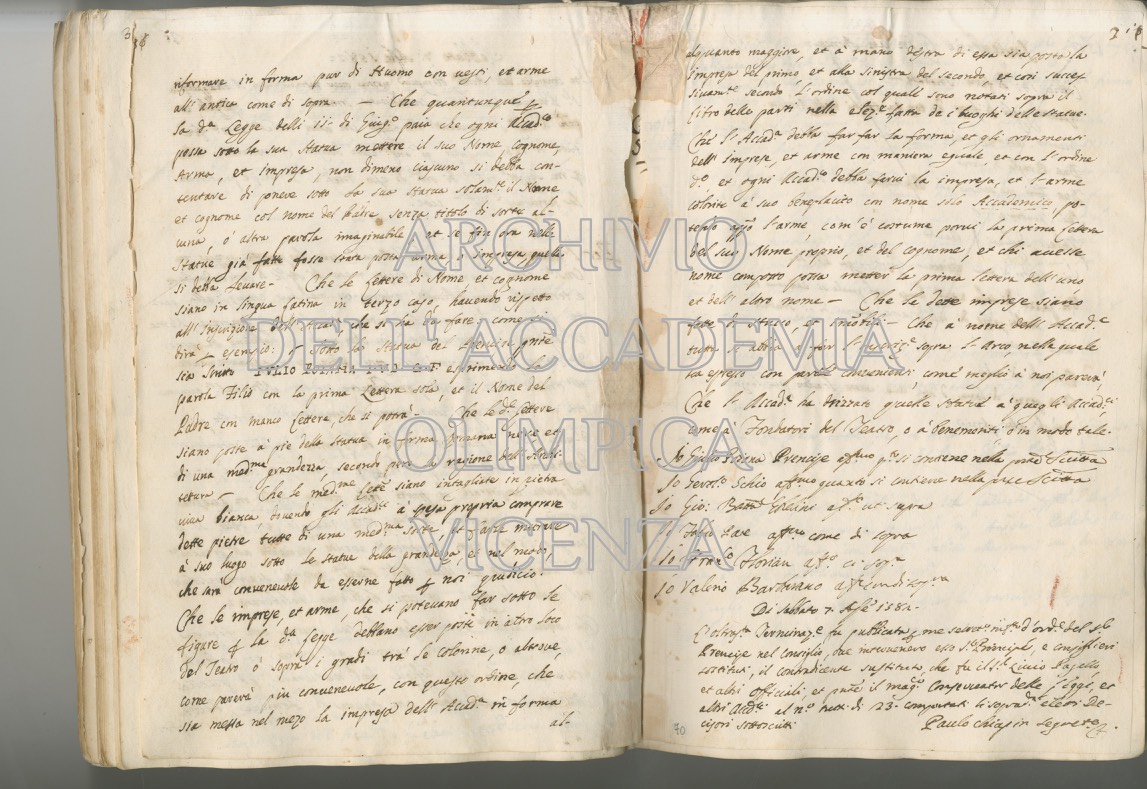 riformare in forma pur di Huomo con uesti, et arme
all' antica come di sopra — Che quantunque
la d.a Legge delli di Giug.o paia che ogni Accad.co
possa sotto la sua statua mettere il suo Nome, Cognome,
Arma, et Impresa, non dimeno ciascuno si debba con-
tentare di ponere sotto la sua statua solam.te il Nome
et cognome col nome del Padre senza titolo di sorte al-
cuna, ò altra parola imaginabile et se fin ora nelle
statue già fatte fosse stata posta arma, ò impresa quelle
si debba leuare - Che le lettere di Nome et cognome
siano in lingua latina in terzo caso, hauendo rispetto
all' Inscrizione dell' Accad. che si ha da fare, come si
dirà esempio: sotto la statua de
sia scritto IVLIO esprimendo la
parola Filio con la prima lettera sola, et il Nome del
Padre con manco lettere, che si potrà - Che le d.e lettere
siano poste à piè della statua in forma et
di una med.ma grandezza, secondo però la ragione dell' Archi-
tettura - Che le med.me siano intagliate in pietra
uiua bianca, douendo gli Accad.ci à spesa propria comprare
dette pietre tutte di una med.ma sorte, et farle
à suo luogo sotto le statue della grandezza, et nel modo,
che sarà conueneuole da esserne fatto noi giudicio.
Che le imprese, et arme, che si poteuano far sotto le
figure la d.a legge debbano esser poste in altro loco
del Teatro ò sopra i gradi trà le colonne, o altroue,
come parerà più conueneuole, con questo ordine, che
sia messa nel mezo la impresa dell' Accad.a in forma
al-
alquanto maggiore, et à mano destra di essa sia posta la
impresa del primo, et alla sinistra del secondo, et così succes-
siuam.te secondo l'ordine col quale sono notati sopra il
libro delle parti nella elez.e fatta de i luoghi delle statue.
Che l'Accad.a debba far far la forma et gli ornamenti
dell' Imprese, et arme con maniera eguale, et con l'ordine
d.o et ogni Accad.o debba farui la impresa, et l'arme
colorite à suo beneplacito con nome solo Accademico po-
tendo l'arme, com'è costume porui la prima lettera
del suo Nome proprio, et del cognome, et chi auesse
nome composto possa metter la prima lettera dell' uno
et dell' altro nome - Che le dette imprese siano
fatte di stucco, et - Che à nome dell' Accad.a
tutta si abbia à far l' sopra l' Arco, nella quale
sia espresso con parole conuenienti, come meglio à noi parerà
Che l' Accad.a ha drizzate quelle statue à quegli Accad.ci
come à Fondatori del Teatro, o à benemeriti ò in modo tale.
Io Giulio Poiana Prencipe aff.mo q.to si contiene nella pnte Scrittura
Io Schio aff.mo quanto si contiene nella pnte Scrittura
Io Gio: Batta aff. ut supra
Io Fabio Pace aff.mo come di sopra
Io Fran.co Floriani aff.o
Io Valerio Barbarano
Di Sabbato 7.
L'oltras.ta Terminaz.e fu publicata me d'ord.e del
Prencipe nel consiglio, oue interuennero esso S.r Principe, e consiglieri
costituti, il contradicente sustituto che fu il S.r Liuio Pagello
et altri Officiali, et il mag.co Conseruator delle leggi, et
altri Accad.ci al n.o di 23. computati li soprad.ti eletti De-
cisori sottoscritti
Paulo Chiapin Segretario.
70
ARCHIVIO
DELL'ACCADEMIA
OLIMPICA
VICENZA